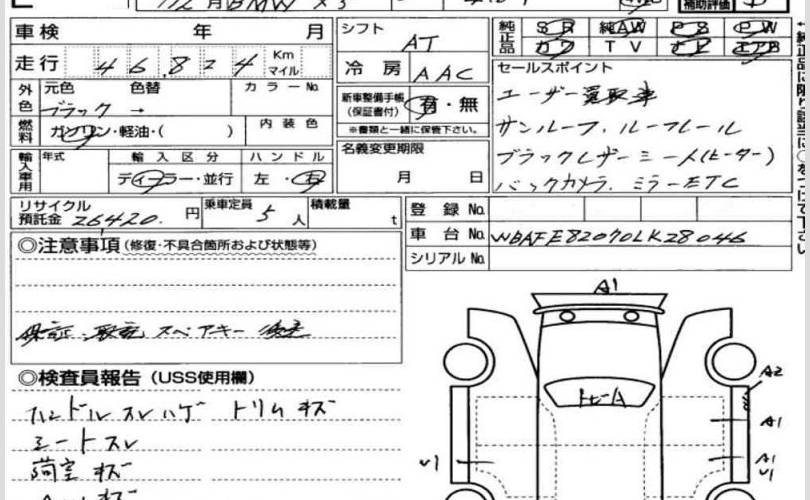 月BMW X3
補助評価
車検 年 月
シフト AT
純正品 SR 純AW PS PW
カワ TV ナビ エアB
走行 46,824 Km マイル
冷房 AAC
セールスポイント
ユーザー買取車
サンルーフ、ルーフレール
ブラックレザーシート(ヒーター)
バックカメラ、ミラーETC
外色 元色 色替 カラーNo.
ブラック →
新車整備手帳 (保証書付) 有・無
※書類と一緒に保管下さい。
燃料 ガソリン・軽油・( ) 内装色
名義変更期限
月 日
輸入車用 年式 輸入区分 ハンドル
ディーラー・並行 左・右
リサイクル預託金 26420. 円 乗車定員 5 人 積載量 t
登録 No.
車台 No. WBAFE82070LK28046
シリアル No.
◎注意事項 (修復・不具合箇所および状態等)
保証・取説 スペアキー 後送
◎検査員報告 (USS使用欄)
ハンドルスレハゲ トリムキズ
シートスレ
荷室キズ
キズ
A1
トレーA
A2
A1
A1
U1
U1